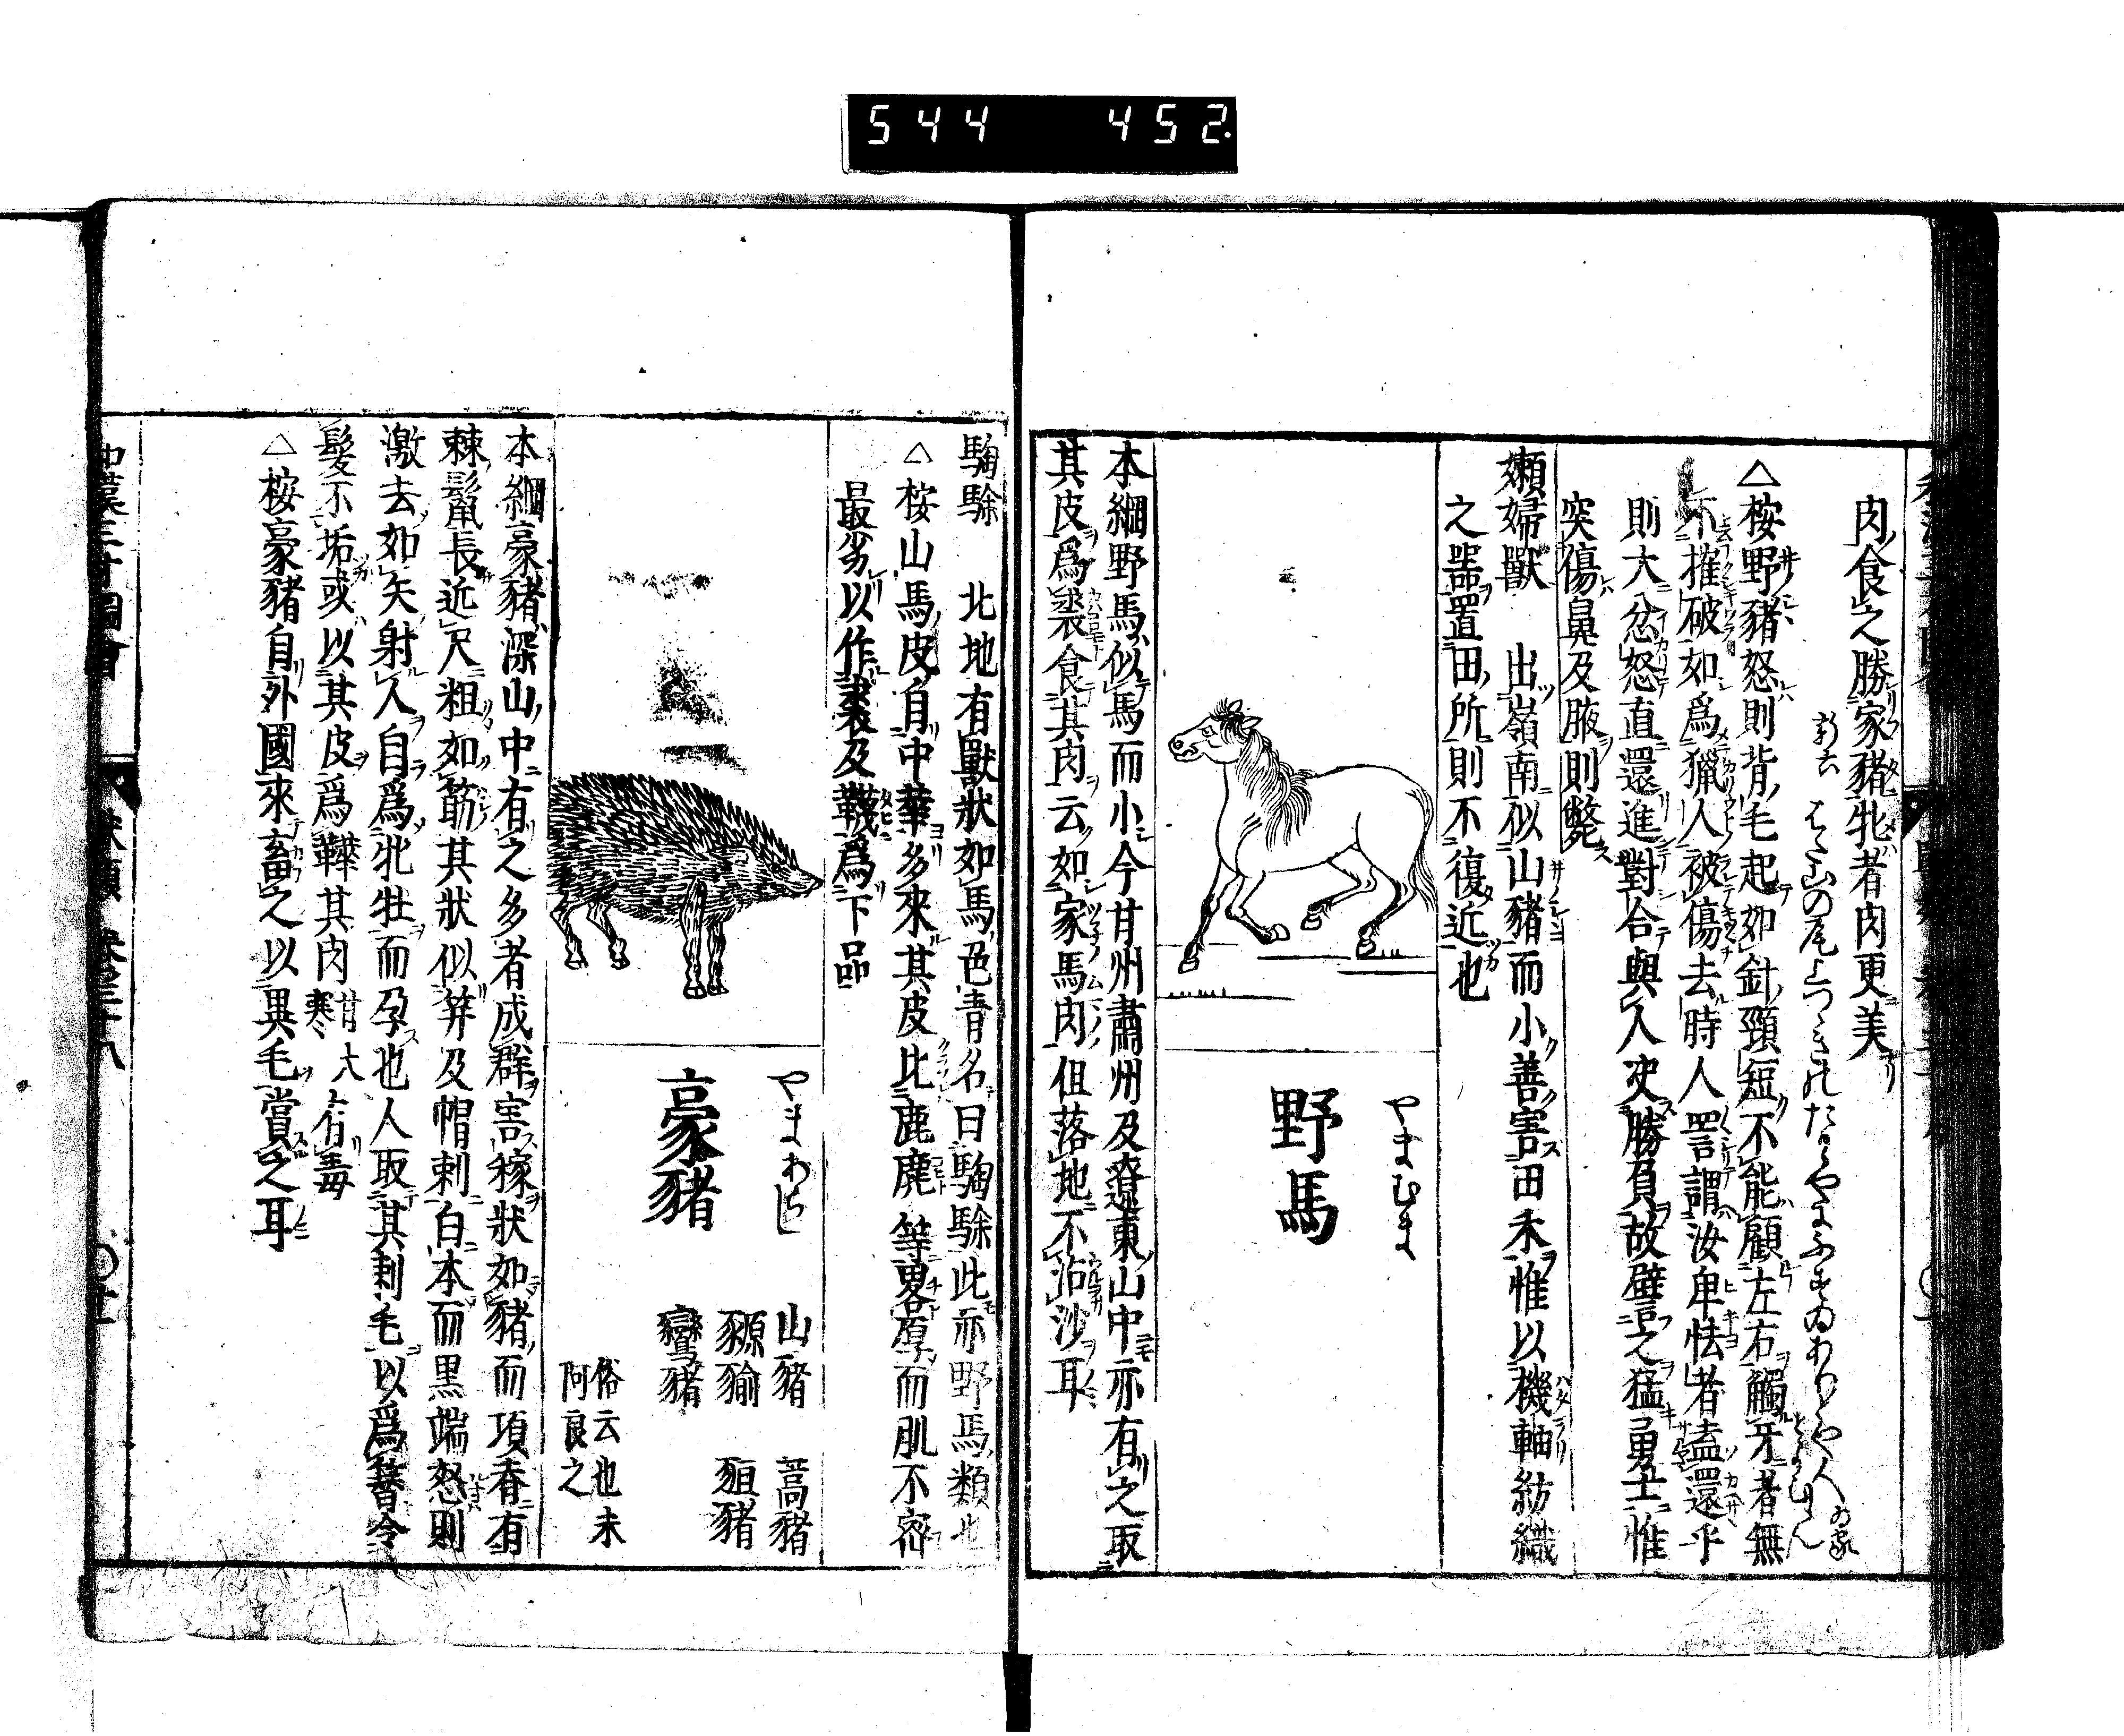 544 452
肉食之勝家豬牝者肉更美
△桉野豬怒則背毛起如針頸短不能顧左右觸牙者無
不摧破如爲獵人被傷去時人詈謂汝卑怯者盍還乎
則大忿怒直還進對合與人決勝負故譬之猛勇士惟
突傷鼻及腋則斃
嬾婦獸 出嶺南似山豬而小善害田禾惟以機軸紡織
之器置田所則不復近也
やまむま
野馬
本綱野馬似馬而小今甘州肅州及遼東山中亦有之取
其皮爲裘食其肉云如家馬肉但落地不沾沙耳
騊駼 北地有獸狀如馬色青名曰騊駼此亦野馬類也
△桉山馬皮自中華多來其皮比鹿麂等畧厚而肌不密
最劣以作裘及韈爲下品
やまあらし
豪豬
山豬 蒿豬
豲貐 豠豬
鸞豬
俗云也末
阿良之
本綱豪豬深山中有之多者成群害稼狀如豬而項脊有
棘鬣長近尺粗如筯其狀似筓及帽刺白本而黒端怒則
激去如矢射人自爲牝牡而孕也人取其刺毛以爲簪令
髮不垢或以其皮爲鞾其肉甘大寒有毒
△桉豪豬自外國來畜之以異毛賞之耳